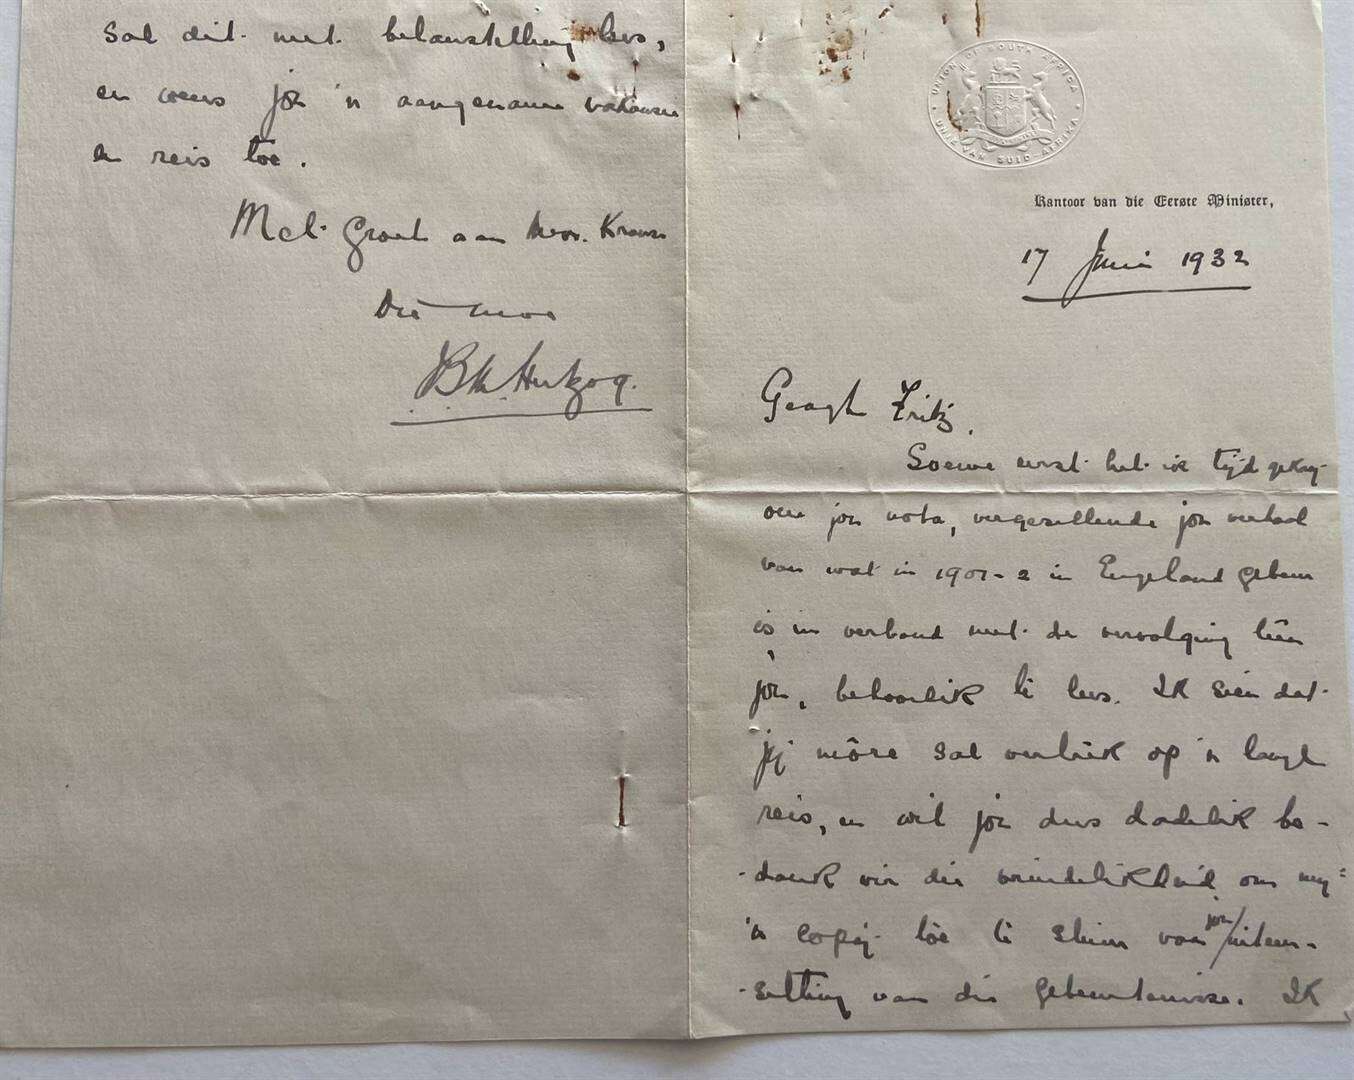 UNION OF SOUTH AFRICA
UNIE VAN SUID-AFRIKA
Kantoor van die Eerste Minister,
17 Junie 1932
Geagte Fritz,
Soewe eerst het ik tijd gekrij
om jou nota, vergesellende jou verhaal
van wat in 1901-2 in Engeland gebeur
is in verband met de vervolging teen
jou, behoorlik te lees. Ik sien dat
jij môre sal vertrek op 'n lange
reis, en wil jou dus dadelik be-
-dank vir die vriendelikheid om mij
'n copij toe te stuur van jou uiteen-
-setting van die gebeurtenisse. Ik
sal dit met belangstelling lees,
en wens jou 'n aangename vakansie
en reis toe.
Met groete aan Mevr. Krause
Die uwe
JBM Hertzog.